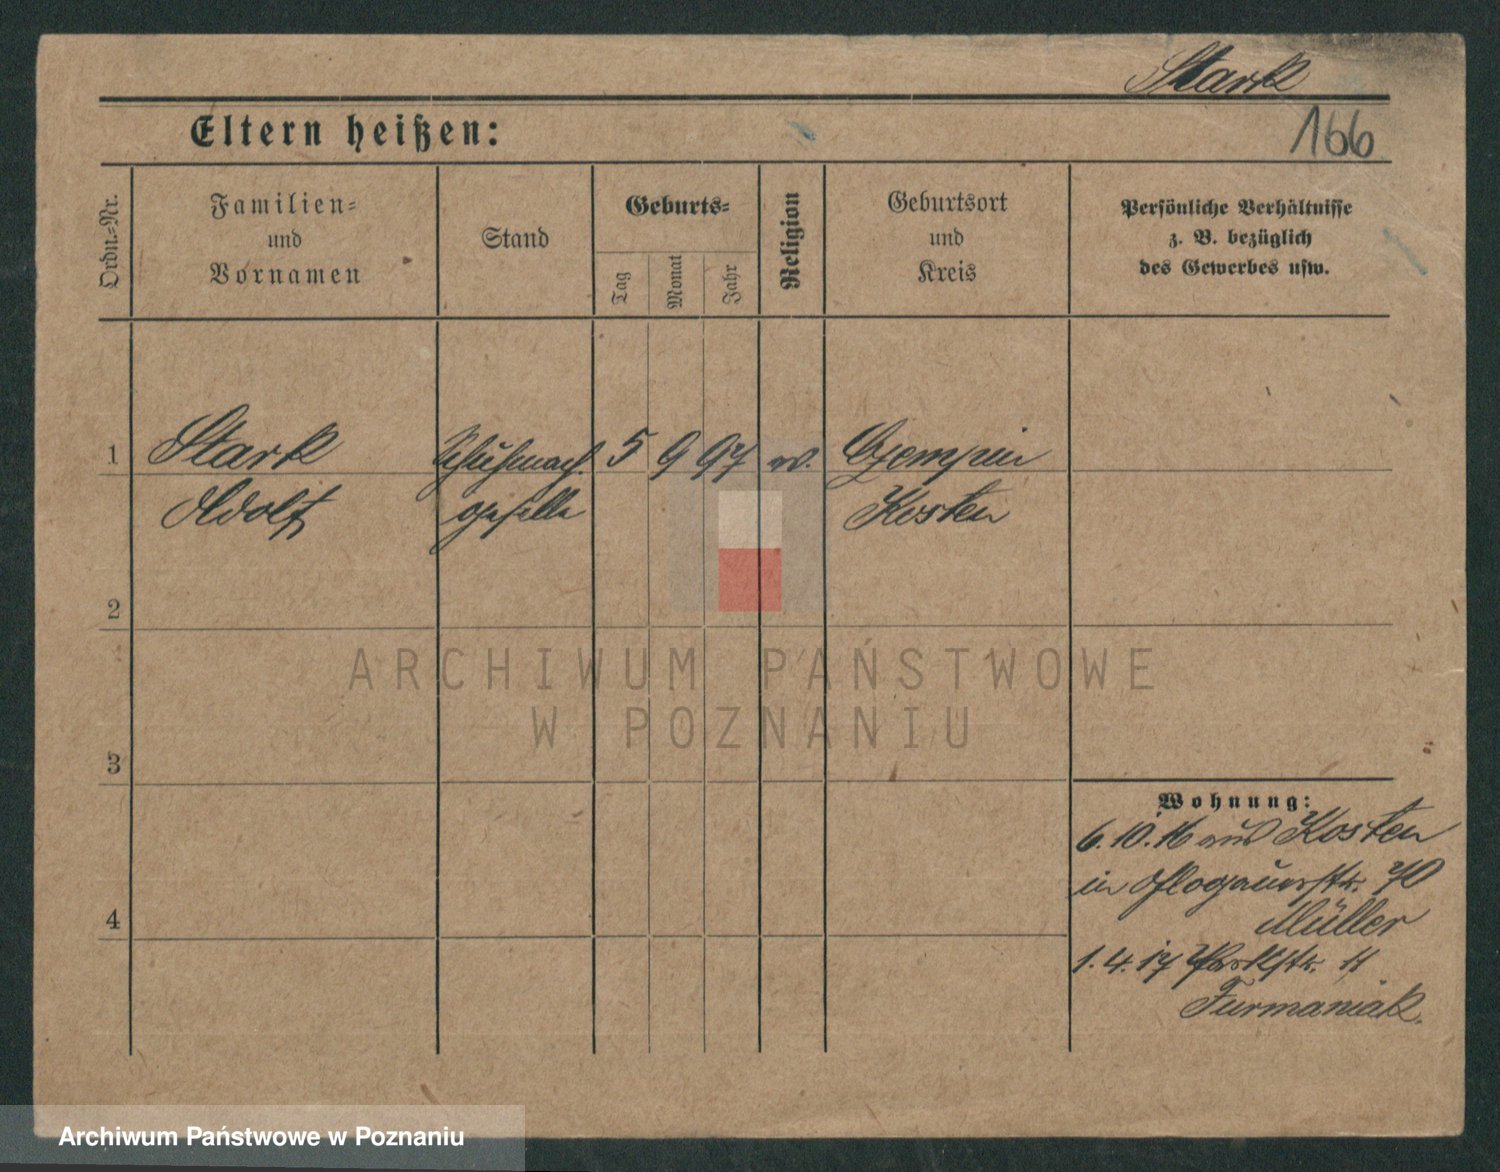 Stark
166
Eltern heißen:
Ordn.-Nr.
Familien-
und
Vornamen
Stand
Geburts-
Tag
Monat
Jahr
Religion
Geburtsort
und
Kreis
Persönliche Verhältnisse
z. B. bezüglich
des Gewerbes usw.
1 Stark Schuhmach. 5 9 97 ev. Czempin
Adolf geselle Kosten
2
3
4
Wohnung:
6.10.16 aus Kosten
in Glogauerstr. 70
Müller
1.4.17 Parkstr. 11
Furmaniak.
ARCHIWUM PAŃSTWOWE
W POZNANIU
Archiwum Państwowe w Poznaniu